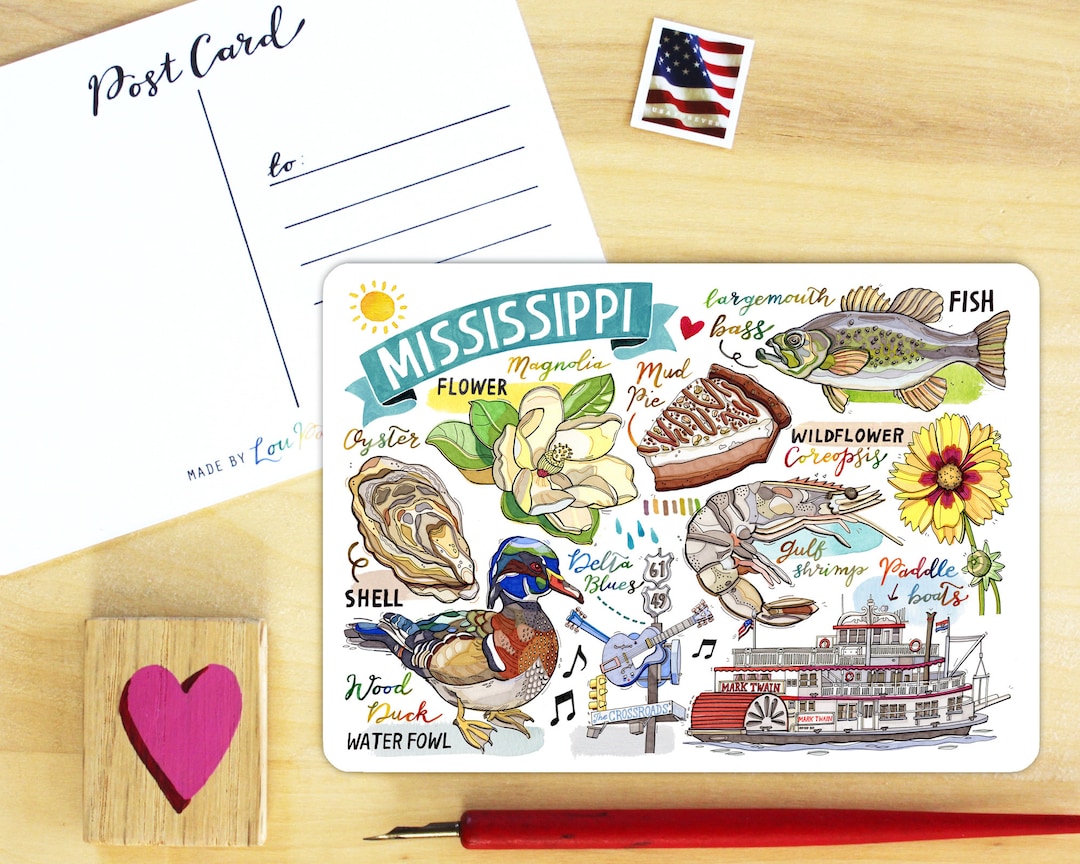 Post Card
to:
MADE BY Lou
MISSISSIPPI
largemouth
bass
FISH
Magnolia
FLOWER
Mud
Pie
Oyster
WILDFLOWER
Coreopsis
SHELL
Delta
Blues
61
49
gulf
shrimp
Paddle
boats
Wood
Duck
WATER FOWL
The CROSSROADS
MARK TWAIN
MARK TWAIN